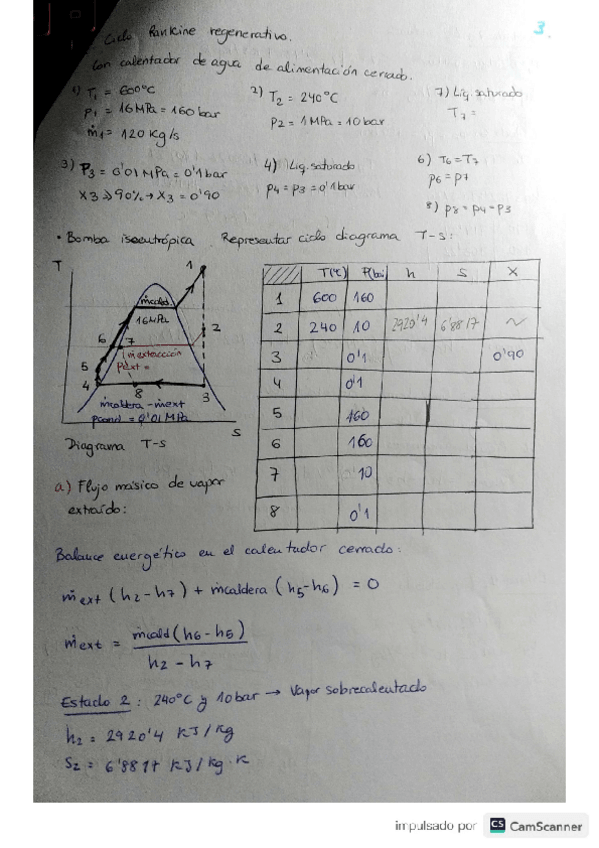 3.
Ciclo Rankine regenerativo.
Con calentador de agua de alimentación cerrado.
1) T1 = 600°C
P1 = 16 MPa = 160 bar
ṁ1 = 120 kg/s
2) T2 = 240°C
P2 = 1 MPa = 10 bar
7) Liq. saturado
T7 =
3) P3 = 0'01 MPa = 0'1 bar
X3 ≥ 90% → X3 = 0'90
4) Liq. saturado
P4 = P3 = 0'1 bar
6) T6 = T7
P6 = P7
8) P8 = P4 = P3
• Bomba isoentrópica Representar ciclo diagrama T-s:
T
1
ṁcald.
16 MPa
2
6 7
ṁextracción
Pext =
5
4
8
3
ṁcaldera - ṁext
Pcond = 0'01 MPa
S
Diagrama T-S
T(°C) P(bar) h s X
1 600 160
2 240 10 2920'4 6'8817 ~
3 0'1 0'90
4 0'1
5 160
6 160
7 10
8 0'1
a) Flujo másico de vapor
extraído:
Balance energético en el calentador cerrado:
ṁext (h2 - h7) + ṁcaldera (h5 - h6) = 0
ṁext = ṁcald (h6 - h5) / h2 - h7
Estado 2: 240°C y 10 bar → Vapor sobrecalentado
h2 = 2920'4 KJ/Kg
S2 = 6'8817 KJ/Kg·K
impulsado por CS CamScanner